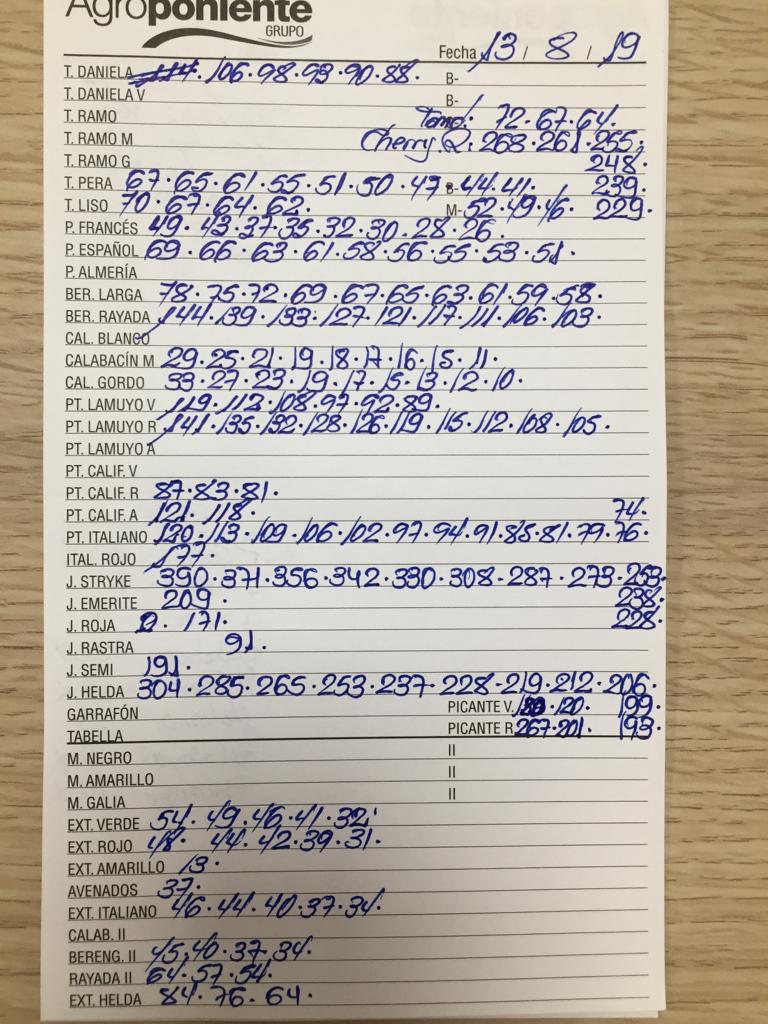 Agroponiente
GRUPO
Fecha 13 / 8 / 19
T. DANIELA 114. 106. 98. 93. 90. 88. B-
T. DANIELA V B-
T. RAMO 72. 67. 64.
T. RAMO M Cherry. R. 268. 261. 255.
T. RAMO G 248.
T. PERA 67. 65. 61. 55. 51. 50. 47 B- 44. 41. 239.
T. LISO 70. 67. 64. 62. M- 52. 49. 46. 229.
P. FRANCÉS 49. 43. 37. 35. 32. 30. 28. 26.
P. ESPAÑOL 69. 66. 63. 61. 58. 56. 55. 53. 51.
P. ALMERÍA
BER. LARGA 78. 75. 72. 69. 67. 65. 63. 61. 59. 58.
BER. RAYADA 144. 139. 133. 127. 121. 117. 111. 106. 103.
CAL. BLANCO
CALABACÍN M 29. 25. 21. 19. 18. 17. 16. 15. 11.
CAL. GORDO 33. 27. 23. 19. 17. 15. 13. 12. 10.
PT. LAMUYO V 119. 112. 108. 97. 92. 89.
PT. LAMUYO R 141. 135. 132. 128. 126. 119. 115. 112. 108. 105.
PT. LAMUYO A
PT. CALIF. V
PT. CALIF. R 87. 83. 81.
PT. CALIF. A 121. 118. 74.
PT. ITALIANO 120. 113. 109. 106. 102. 97. 94. 91. 85. 81. 79. 76.
ITAL. ROJO 177.
J. STRYKE 390. 371. 356. 342. 330. 308. 287. 273. 253.
J. EMERITE 209. 238.
J. ROJA 171. 228.
J. RASTRA 91.
J. SEMI 191.
J. HELDA 304. 285. 265. 253. 237. 228. 219. 212. 206.
GARRAFÓN PICANTE V. 120. 199.
TABELLA PICANTE R 267. 201. 193.
M. NEGRO II
M. AMARILLO II
M. GALIA II
EXT. VERDE 54. 49. 46. 41. 32.
EXT. ROJO 48. 44. 42. 39. 31.
EXT. AMARILLO 13.
AVENADOS 37.
EXT. ITALIANO 46. 44. 40. 37. 34.
CALAB. II
BERENG. II 45. 40. 37. 34.
RAYADA II 64. 57. 54.
EXT. HELDA 84. 76. 64.